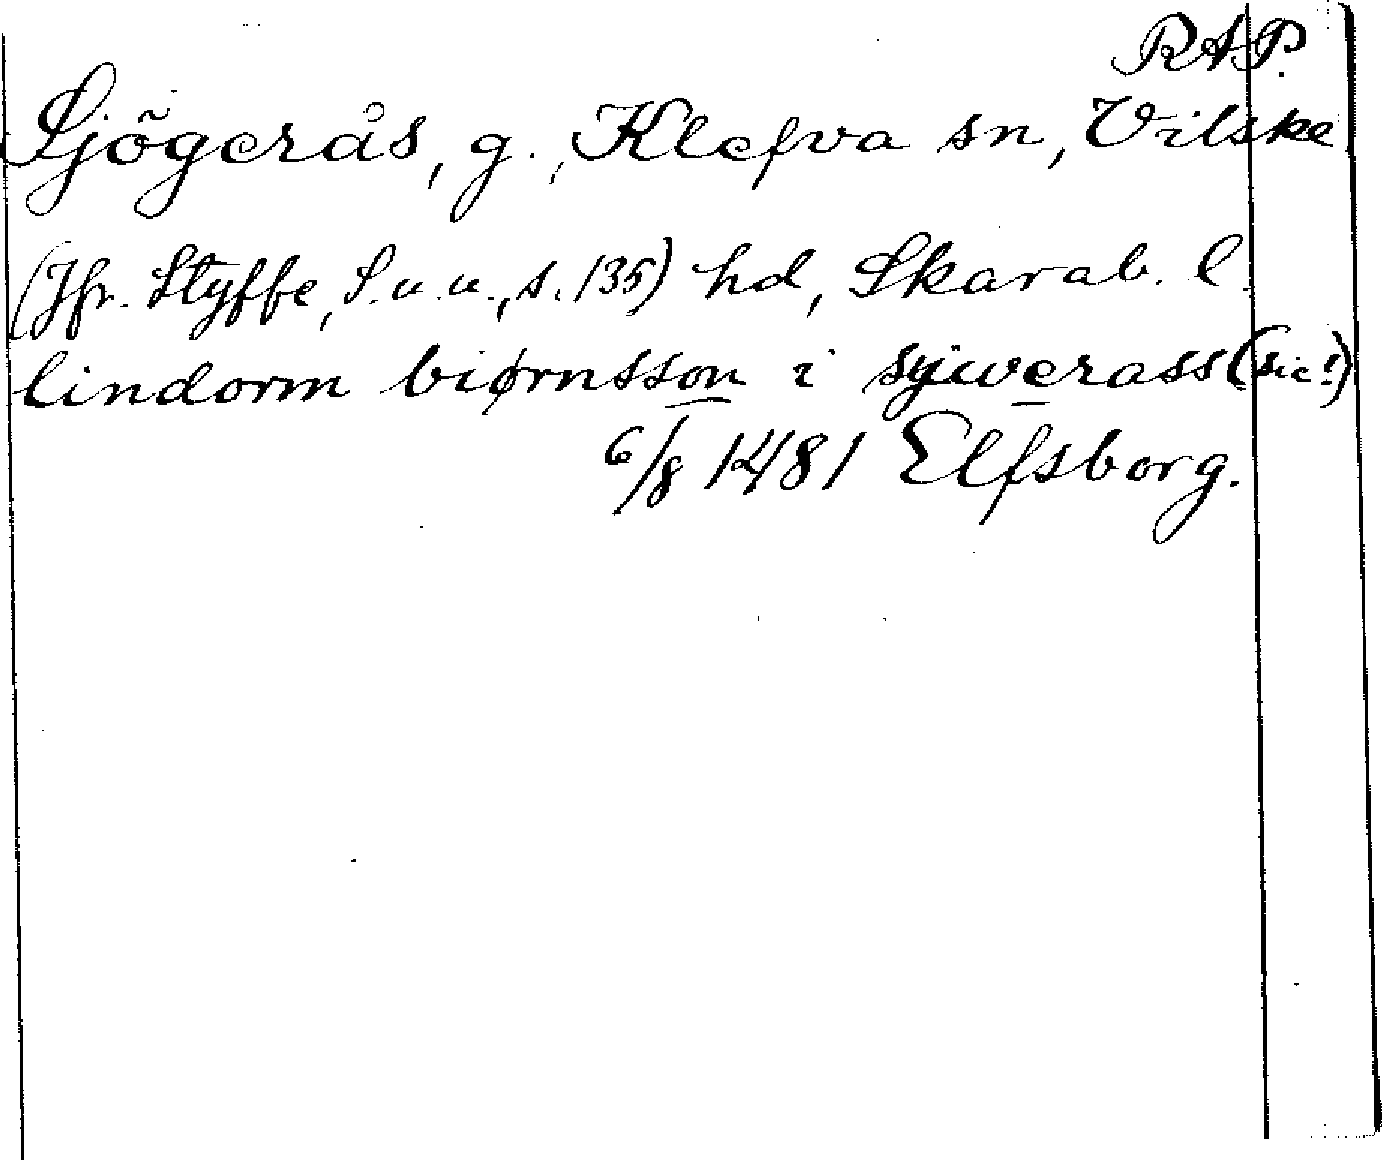 RAP.
Sjögerås, g., Klefva sn, Vilske
(Jfr. Styffe, S.u.u., s. 135) hd, Skarab. l.
lindorm biørnsson i syiwerass (sic!)
6/8 1481 Elfsborg.